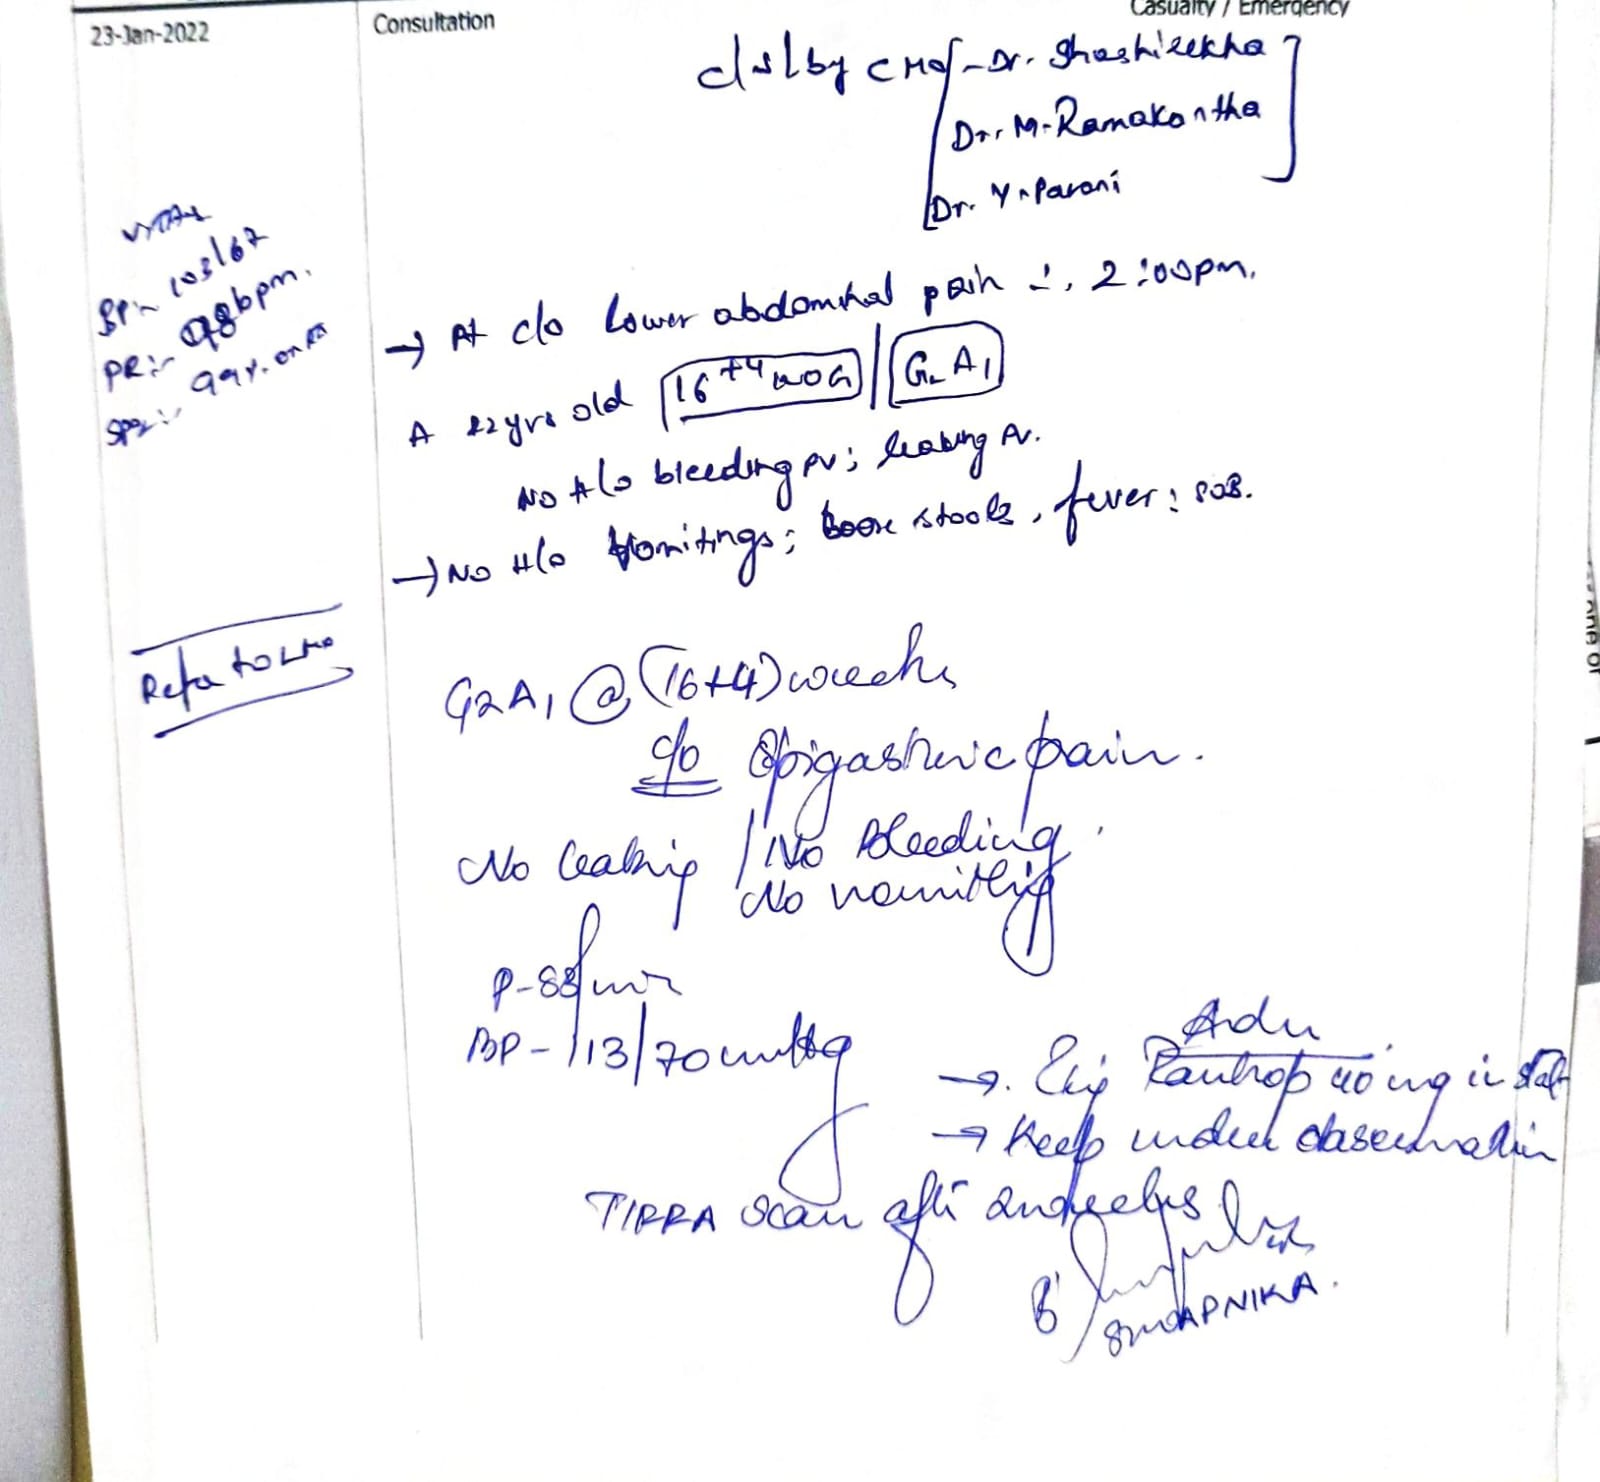 Casualty / Emergency
23-Jan-2022
Consultation
c/s/by CMO - Dr. Shashirekha
Dr. M. Ramakantha
Dr. Y. Pavani
Vitals
BP:- 103/67
PR:- 98bpm.
SPO2:- 99%. on RA
→ Pt c/o lower abdominal pain 2:00pm.
A 22yrs old 16+4 WOG / G2A1
No H/o bleeding PV; leaking PV.
→ No H/o Vomitings; loose stools, fever; SOB.
Refer to
G2A1 @ (16+4) weeks
c/o Epigastric pain.
No leaking / No Bleeding
No vomiting
P-88/min
BP-113/70mmHg
Adv
→. Inj Pantop 40 mg iv stat
→ Keep under observation
TIFFA Scan after 2 weeks
SWAPNIKA.
one of